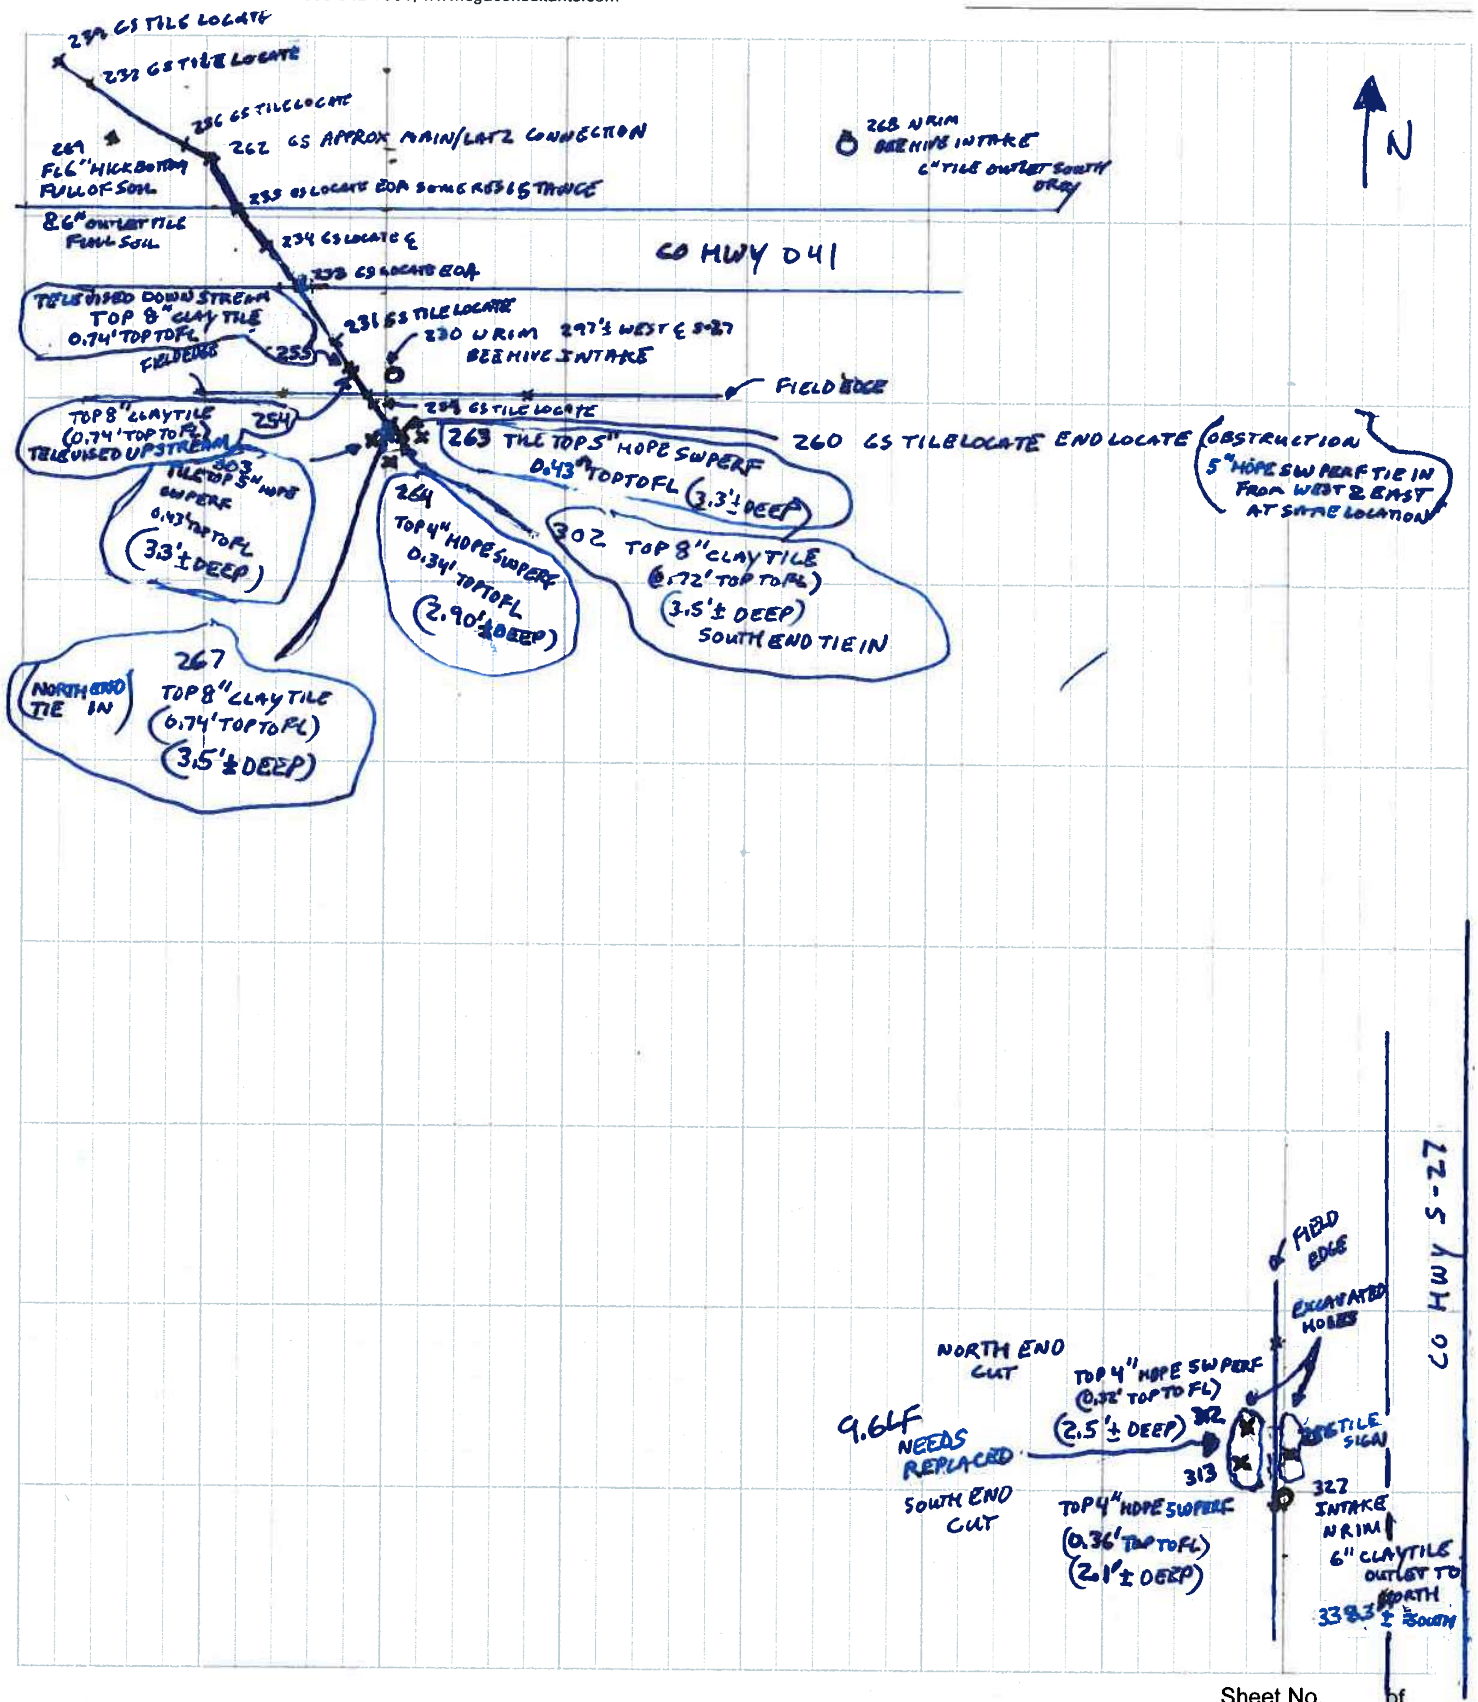 239 GS TILE LOCATE
232 GS TILE LOCATE
236 GS TILE LOCATE
262 GS APPROX MAIN/LAT2 CONNECTION
269
FL 6" HICK BOTTOM
FULL OF SOIL
268 N RIM
BEEHIVE INTAKE
6" TILE OUTLET SOUTH
DRY
N
235 GS LOCATE EOA SOME RESISTANCE
& 6" OUTLET TILE
FULL SOIL
234 GS LOCATE ℄
CO HWY 041
233 GS LOCATE EOA
TELEVISED DOWNSTREAM
TOP 8" CLAY TILE
0.74' TOP TO FL
255
231 GS TILE LOCATE
230 N RIM 297'± WEST ℄ S-27
BEEHIVE INTAKE
FIELD EDGE
FIELD EDGE
TOP 8" CLAY TILE
(0.74' TOP TO FL)
TELEVISED UPSTREAM
254
GS TILE LOCATE
263 TILE TOP 5" HDPE SWPERF
0.43' TOP TO FL (3.3'± DEEP)
260 GS TILE LOCATE END LOCATE (OBSTRUCTION
5" HDPE SW PERF TIE IN
FROM WEST & EAST
AT SAME LOCATION)
303
TILE TOP 5" HDPE
SWPERF
0.43' TOP TO FL
(3.3'± DEEP)
264
TOP 4" HDPE SWPERF
0.34' TOP TO FL
(2.90'± DEEP)
302 TOP 8" CLAY TILE
(0.72' TOP TO FL)
(3.5'± DEEP)
SOUTH END TIE IN
267
(NORTH END
TIE IN)
TOP 8" CLAY TILE
(0.74' TOP TO FL)
(3.5'± DEEP)
CO HWY S-27
FIELD
EDGE
EXCAVATED
HOLES
NORTH END
CUT
TOP 4" HDPE SW PERF
(0.32' TOP TO FL)
(2.5'± DEEP) 312
9.6 LF
NEEDS
REPLACED
TILE
SIGN
313
SOUTH END
CUT
TOP 4" HDPE SWPERF
(0.36' TOP TO FL)
(2.1'± DEEP)
322
INTAKE
N RIM
6" CLAY TILE
OUTLET TO
NORTH
3383'± SOUTH
Sheet No. of